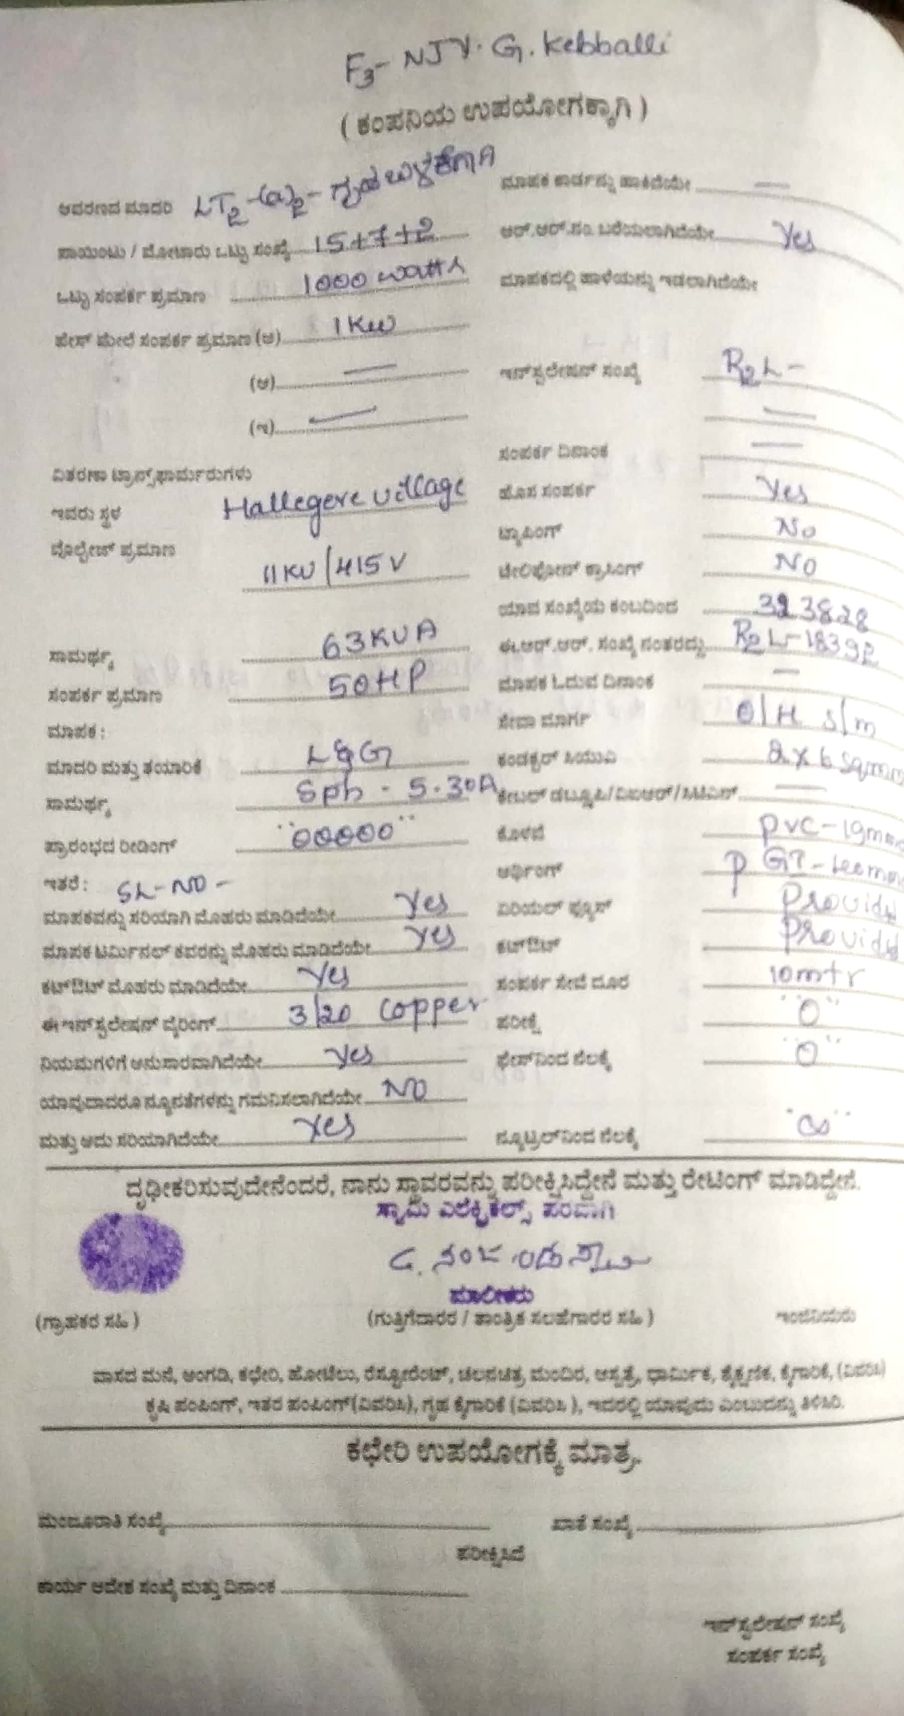 F3- NJY. G. Kebballi
( ಕಂಪನಿಯ ಉಪಯೋಗಕ್ಕಾಗಿ )
ಆವರಣದ ಮಾದರಿ LT2-(a)2- ಗೃಹ ಬಳಕೆಗಾಗಿ
ಮಾಪಕ ಕಾರ್ಡನ್ನು ಹಾಕಿದೆಯೇ —
ಪಾಯಿಂಟು / ಮೋಟಾರು ಒಟ್ಟು ಸಂಖ್ಯೆ 15+7+2
ಆರ್.ಆರ್.ನಂ. ಬರೆಯಲಾಗಿದೆಯೇ Yes
ಒಟ್ಟು ಸಂಪರ್ಕ ಪ್ರಮಾಣ 1000 watts
ಮಾಪಕದಲ್ಲಿ ಹಾಳೆಯನ್ನು ಇಡಲಾಗಿದೆಯೇ
ಫೇಸ್ ಮೇಲೆ ಸಂಪರ್ಕ ಪ್ರಮಾಣ (ಅ) 1Kw
(ಆ) —
ಇನ್‌ಸ್ಟಲೇಷನ್ ಸಂಖ್ಯೆ R2L-
(ಇ) —
—
ಸಂಪರ್ಕ ದಿನಾಂಕ —
ವಿತರಣಾ ಟ್ರಾನ್ಸ್‌ಫಾರ್ಮರುಗಳು
ಇವರು ಸ್ಥಳ Hallegere village
ಹೊಸ ಸಂಪರ್ಕ Yes
ವೊಲ್ಟೇಜ್ ಪ್ರಮಾಣ
ಟ್ಯಾಪಿಂಗ್ No
11KV/415V
ಟೇಲಿಫೋನ್ ಕ್ರಾಸಿಂಗ್ NO
ಯಾವ ಸಂಖ್ಯೆಯ ಕಂಬದಿಂದ 323828
ಸಾಮರ್ಥ್ಯ 63KVA
ಈ.ಆರ್.ಆರ್. ಸಂಖ್ಯೆ ನಂತರದ್ದು R2L-18392
ಸಂಪರ್ಕ ಪ್ರಮಾಣ 50HP
ಮಾಪಕ ಓದುವ ದಿನಾಂಕ —
ಮಾಪಕ :
ಸೇವಾ ಮಾರ್ಗ O/H s/m
ಮಾದರಿ ಮತ್ತು ತಯಾರಿಕೆ L&G
ಕಂಡಕ್ಟರ್ ಸಿಯುವಿ 2x6 sqmm
ಸಾಮರ್ಥ್ಯ Sph - 5-30A
ಕೇಬಲ್ —
ಪ್ರಾರಂಭದ ರೀಡಿಂಗ್ "00000"
ಕೊಳವೆ PVC-19mm
ಇತರೆ : SL-NO-
ಆರ್ಥಿಂಗ್
ಮಾಪಕವನ್ನು ಸರಿಯಾಗಿ ಮೊಹರು ಮಾಡಿದೆಯೇ Yes
ಏರಿಯಲ್ ಫ್ಯೂಸ್ Provided
ಮಾಪಕ ಟರ್ಮಿನಲ್ ಕವರನ್ನು ಮೊಹರು ಮಾಡಿದೆಯೇ Yes
ಕಟ್‌ಔಟ್ Provided
ಕಟ್‌ಔಟ್ ಮೊಹರು ಮಾಡಿದೆಯೇ Yes
ಸಂಪರ್ಕ ಸೇವೆ ದೂರ 10mtr
ಈ ಇನ್‌ಸ್ಟಲೇಷನ್ ವೈರಿಂಗ್ 3/20 copper
ಪರೀಕ್ಷೆ "O"
ನಿಯಮಗಳಿಗೆ ಅನುಸಾರವಾಗಿದೆಯೇ Yes
ಫೇಸ್‌ನಿಂದ ನೆಲಕ್ಕೆ "O"
ಯಾವುದಾದರೂ ನ್ಯೂನತೆಗಳನ್ನು ಗಮನಿಸಲಾಗಿದೆಯೇ NO
ಮತ್ತು ಅದು ಸರಿಯಾಗಿದೆಯೇ Yes
ನ್ಯೂಟ್ರಲ್‌ನಿಂದ ನೆಲಕ್ಕೆ
ದೃಢೀಕರಿಸುವುದೇನೆಂದರೆ, ನಾನು ಸ್ಥಾವರವನ್ನು ಪರೀಕ್ಷಿಸಿದ್ದೇನೆ ಮತ್ತು ರೇಟಿಂಗ್ ಮಾಡಿದ್ದೇನೆ.
ಸ್ವಾಮಿ ಎಲೆಕ್ಟ್ರಿಕಲ್ಸ್ ಪರವಾಗಿ
ಮಾಲೀಕರು
(ಗ್ರಾಹಕರ ಸಹಿ )
(ಗುತ್ತಿಗೆದಾರರ / ತಾಂತ್ರಿಕ ಸಲಹೆಗಾರರ ಸಹಿ )
ಇಂಜಿನಿಯರು
ವಾಸದ ಮನೆ, ಅಂಗಡಿ, ಕಛೇರಿ, ಹೋಟೆಲು, ರೆಸ್ಟೋರೆಂಟ್, ಚಲನಚಿತ್ರ ಮಂದಿರ, ಆಸ್ಪತ್ರೆ, ಧಾರ್ಮಿಕ, ಶೈಕ್ಷಣಿಕ, ಕೈಗಾರಿಕೆ, (ವಿವರಿಸಿ)
ಕೃಷಿ ಪಂಪಿಂಗ್, ಇತರ ಪಂಪಿಂಗ್(ವಿವರಿಸಿ), ಗೃಹ ಕೈಗಾರಿಕೆ (ವಿವರಿಸಿ ), ಇದರಲ್ಲಿ ಯಾವುದು ಎಂಬುದನ್ನು ತಿಳಿಸಿರಿ.
ಕಛೇರಿ ಉಪಯೋಗಕ್ಕೆ ಮಾತ್ರ.
ಮಂಜೂರಾತಿ ಸಂಖ್ಯೆ
ಖಾತೆ ಸಂಖ್ಯೆ
ಪರೀಕ್ಷಿಸಿದೆ
ಕಾರ್ಯ ಆದೇಶ ಸಂಖ್ಯೆ ಮತ್ತು ದಿನಾಂಕ
ಇನ್‌ಸ್ಟಲೇಷನ್ ಸಂಖ್ಯೆ
ಸಂಪರ್ಕ ಸಂಖ್ಯೆ